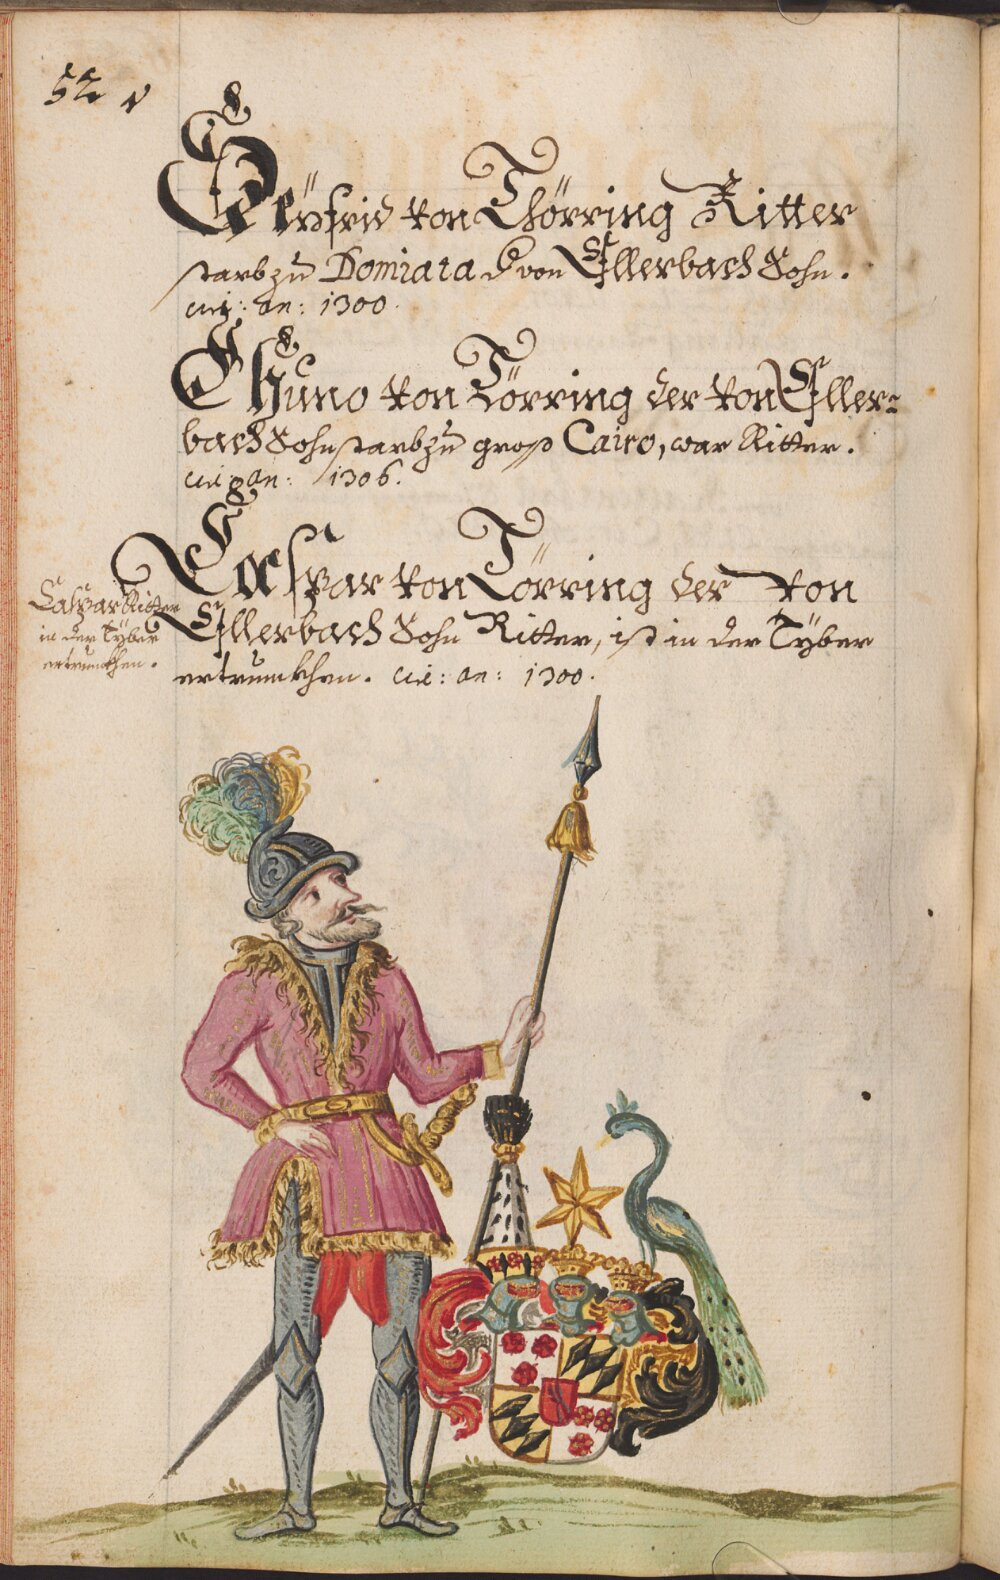 52 v
Seÿfrid von Thörring Ritter
starb zu Domiata d von Ellerbach Sohn.
an: 1300.
Chuno von Törring der von Eller-
bach Sohn starb zu groß Cairo, war Ritter.
an: 1306.
Caspar von Törring der von
Ellerbach Sohn Ritter, ist in der Tÿber
ertrunkhen. an: 1300.
Caspar Ritter
in der Tÿber
ertrunkhen.